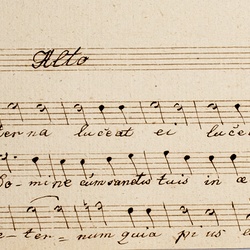 Alto
ter na luceat ei luce
Do-mine cum sanctis tuis in æ
e-ter=num quia pius e